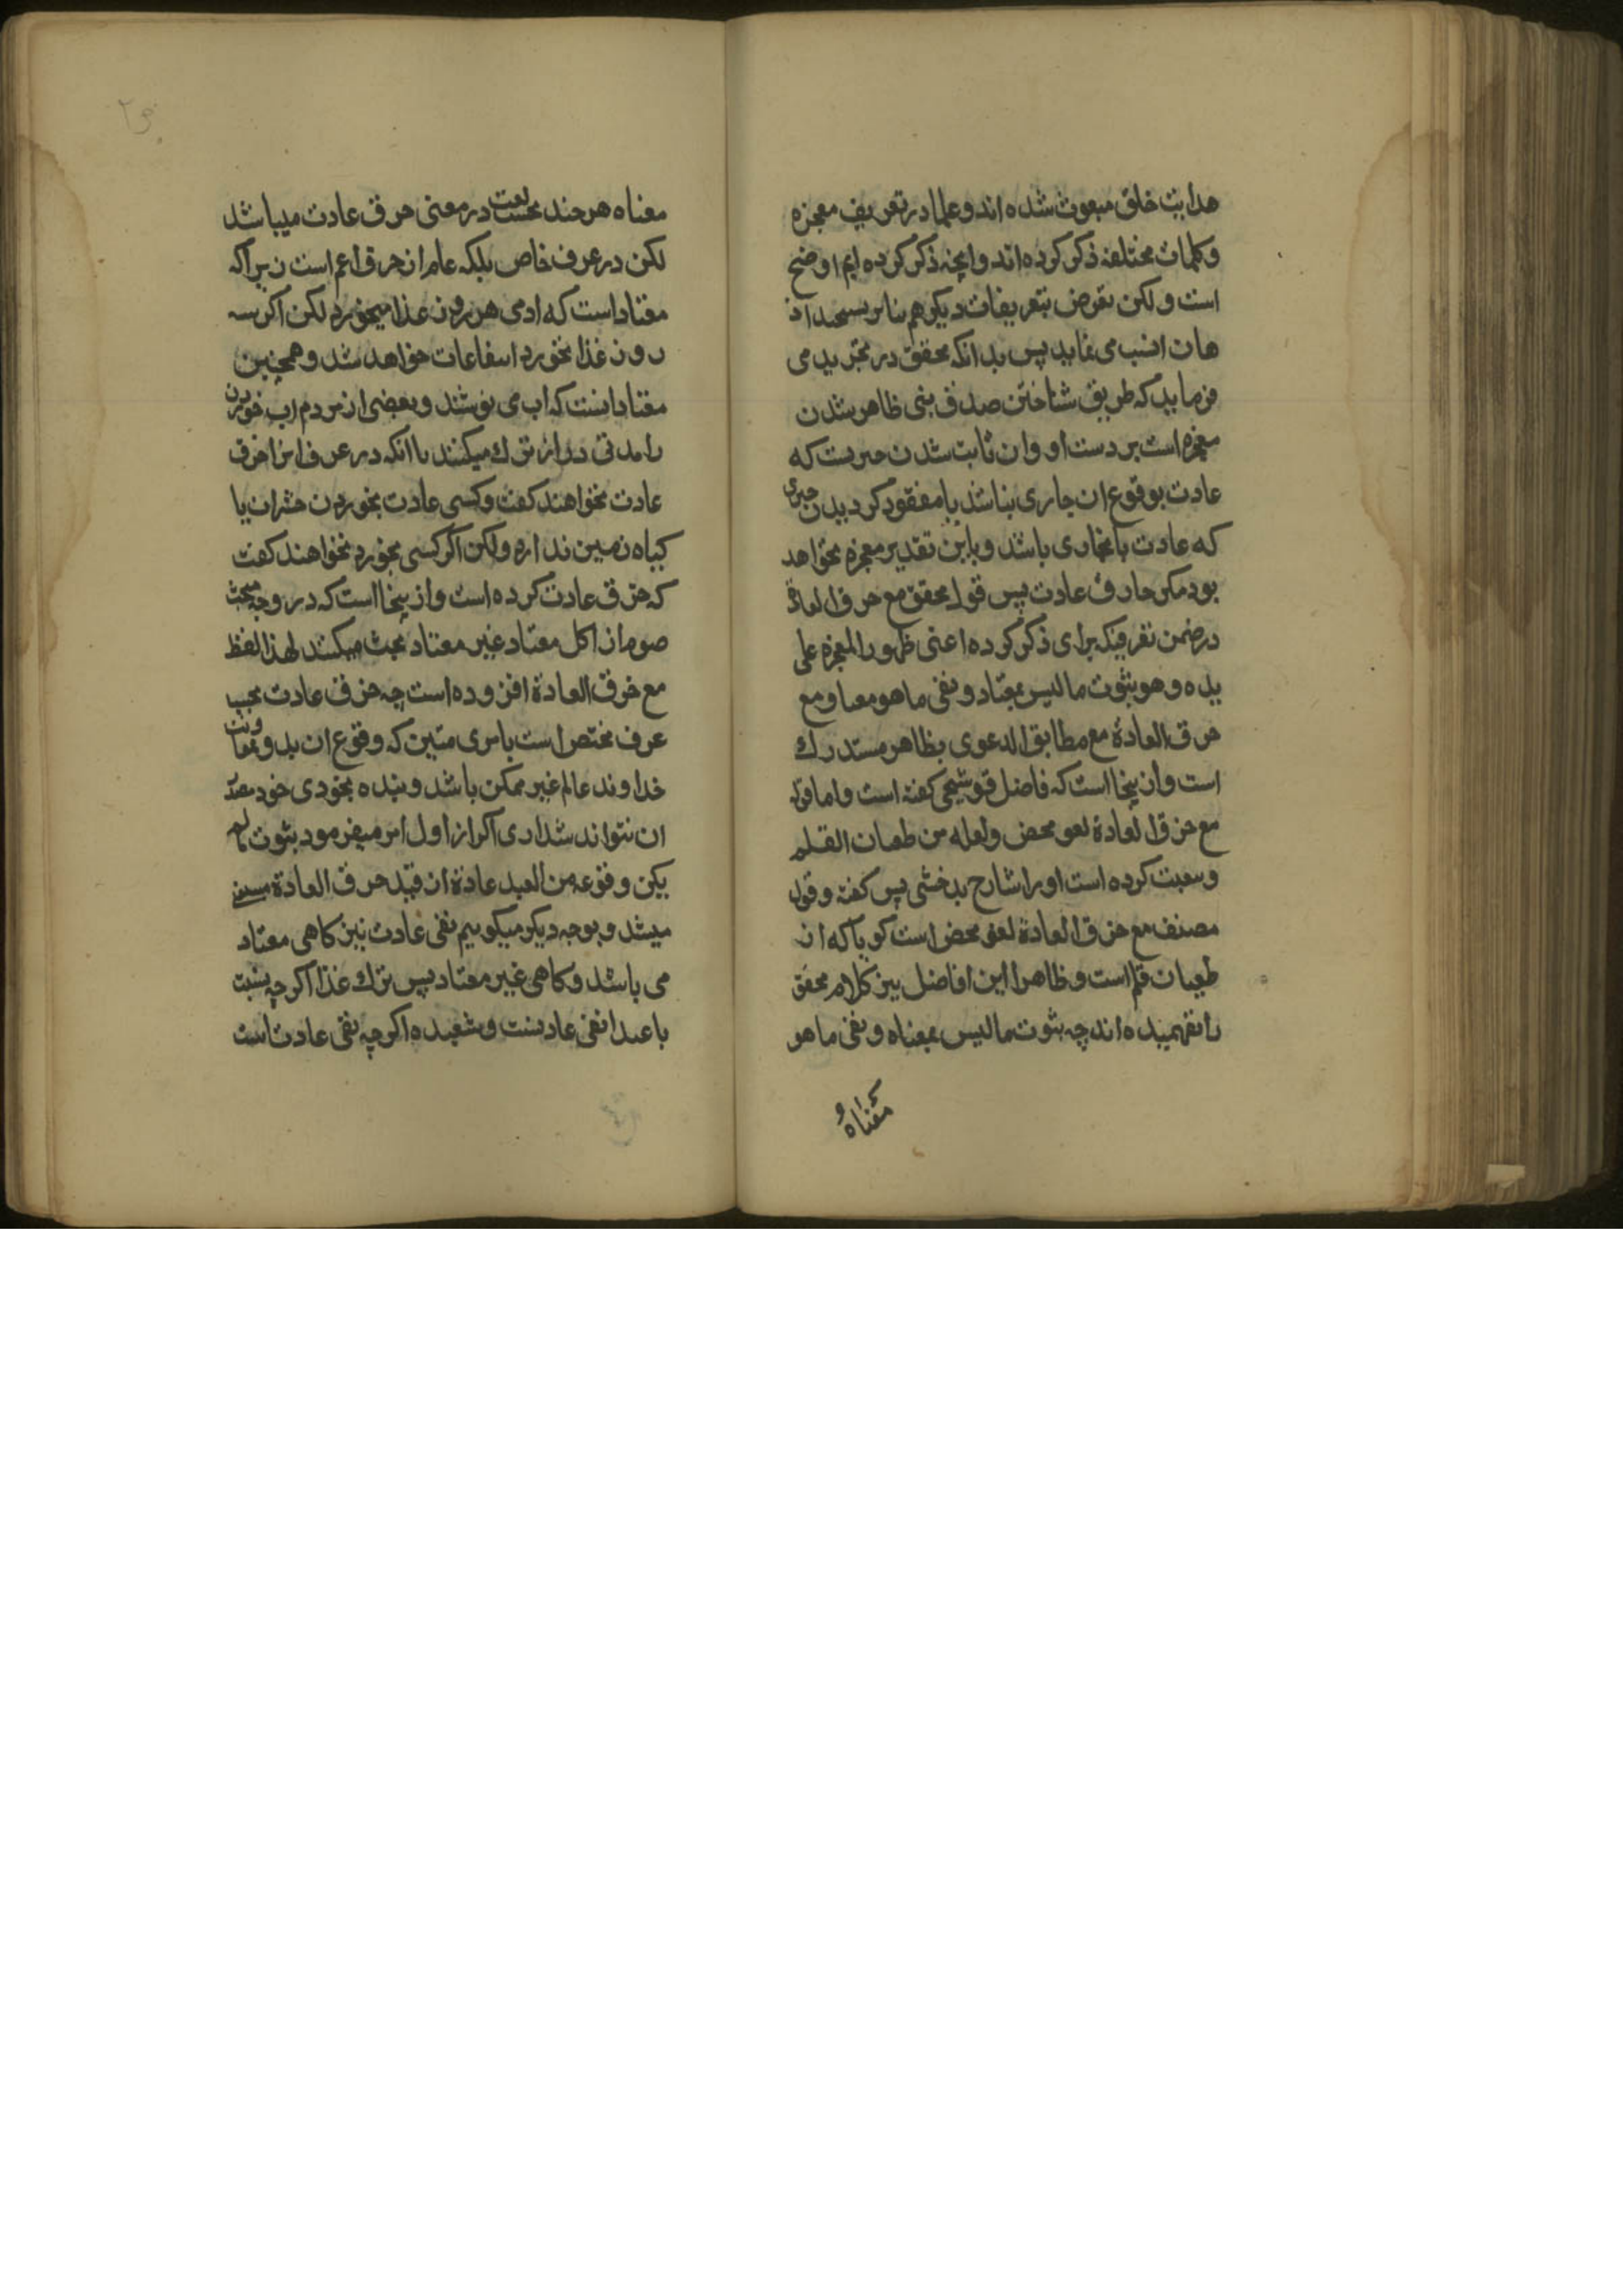 هدایت خلق مبعوث شده اند و علما در تعریف معجزه
و کلمات مختلفه ذکر کرده اند و انچه ذکر کرده ایم اوضح
است ولکن تعرض بتعریفات دیگر هم بنابر
هان انسب می نماید پس بدانکه محقق در تجرید می
فرماید که طریق شناختن صدق نبی ظاهر شدن
معجزه است بر دست او و ان ثابت شدن چیزیست که
عادت بوقوع ان جاری نباشد یا مفقود کردیدن چیزی
که عادت باجاری باشد و باین تقدیر معجزه نخواهد
بود مکر خارق عادت پس قول محقق مع خرق العادة
در ضمن تعریفیکه برای ذکر کرده اعنی ظهور المعجزه علی
یده و هو ثبوت ما لیس بمعتاد و نفی ما هو معتاد مع
خرق العادة مع مطابق الدعوی بظاهر مستدرک
است و از ینجا است که فاضل قوشجی کفته است و اما قوله
مع خرق العادة لغو محض ولعله من طغیان القلم
و تبعیت کرده است او را شارح بدخشی پس کفته و قول
مصنف مع خرق العادة لغو محض است کویا که از
طغیان قلم است و ظاهرا این افاضل نیز کلام محقق
را نفهمیده اند چه ثبوت ما لیس بمعتاد و نفی ما هو
معتاد
معتاد هر چند بحسب لغت در معنی خرق عادت میباشد
لکن در عرف خاص بلکه عام از خرق اعم است زیرا که
معتاد است که ادمی هر روز غذا میخورد لکن اکر سه
روز غذا نخورد خواهد شد و همچنین
معتاد اینست که اب می نوشند و بعضی از مردم اب خوردن
را مدتی دراز ترک میکنند با انکه در عرف انرا خرق
عادت نخواهند کفت و کسی عادت بخوردن حشرات یا
کیاه زمین ندارد ولکن اکر کسی بخورد نخواهند کفت
که خرق عادت کرده است و از ینجا است که در وجه مبحث
صوم از اکل معتاد غیر معتاد بحث میکنند لهذا لفظ
مع خرق العادة افزوده است چه خرق عادت بحسب
عرف مختص است بامری متین که وقوع ان بدون معاونت
خداوند عالم غیر ممکن باشد و بنده بخودی خود مصدر
ان نتواند شد اری اکر از اول امر میفرمود ثبوت ما لم
یکن وقوعه من العبد عادة از قید خرق العادة مستغنی
میشد و بوجه دیکر میکوییم نفی عادت نیز کاهی معتاد
می باشد و کاهی غیر معتاد پس ترک غذا اکر چه بنسبت
با نفی عادتست و شعبده اکر چه نفی عادت است